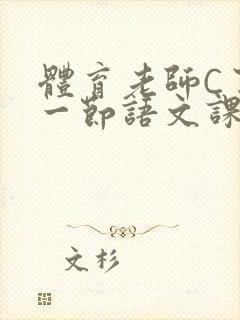 體育老師C了
一節語文課
文杉